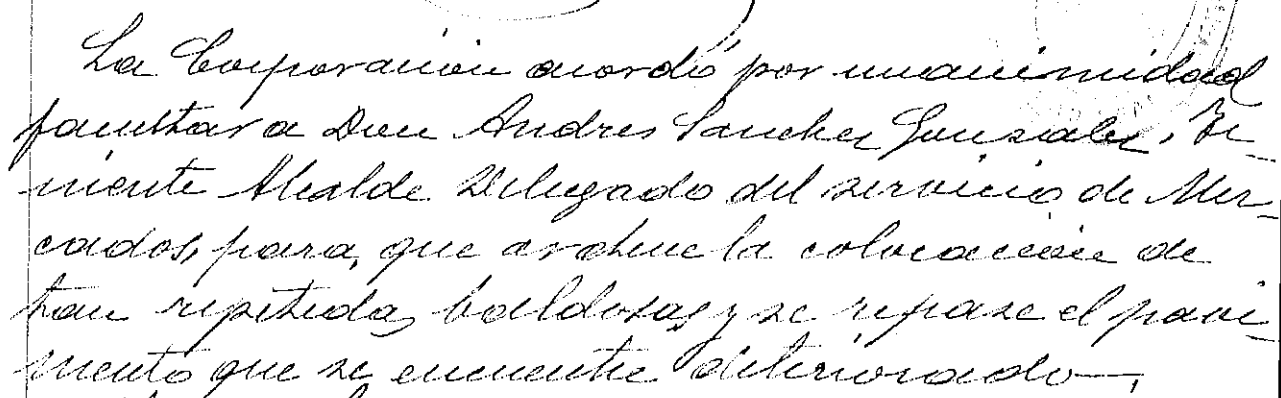 La Corporación acordó por unanimidad
facultar a Don Andres Sanchez Gonzalez, Te-
niente Alcalde Delegado del servicio de Mer-
cados, para, que ordene la colocación de
tan repetidas baldosas y se repase el pavi-
mento que se encuentre deteriorado—,